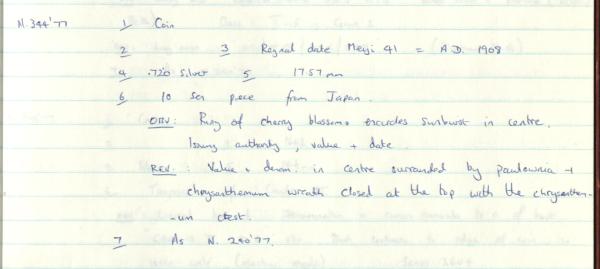 N.344'77 1 Coin
2 3 Regnal date Meiji 41 = A.D. 1908
4 .720 Silver 5 17.57mm
6 10 Sen piece from Japan.
OBV: Ring of cherry blossoms encircles sunburst in centre.
Issuing authority, value + date.
REV.: Value + denom. in centre surrounded by paulownia +
chrysanthemum wreath closed at the top with the chrysanthem-
-um crest.
7 As N.240'77.